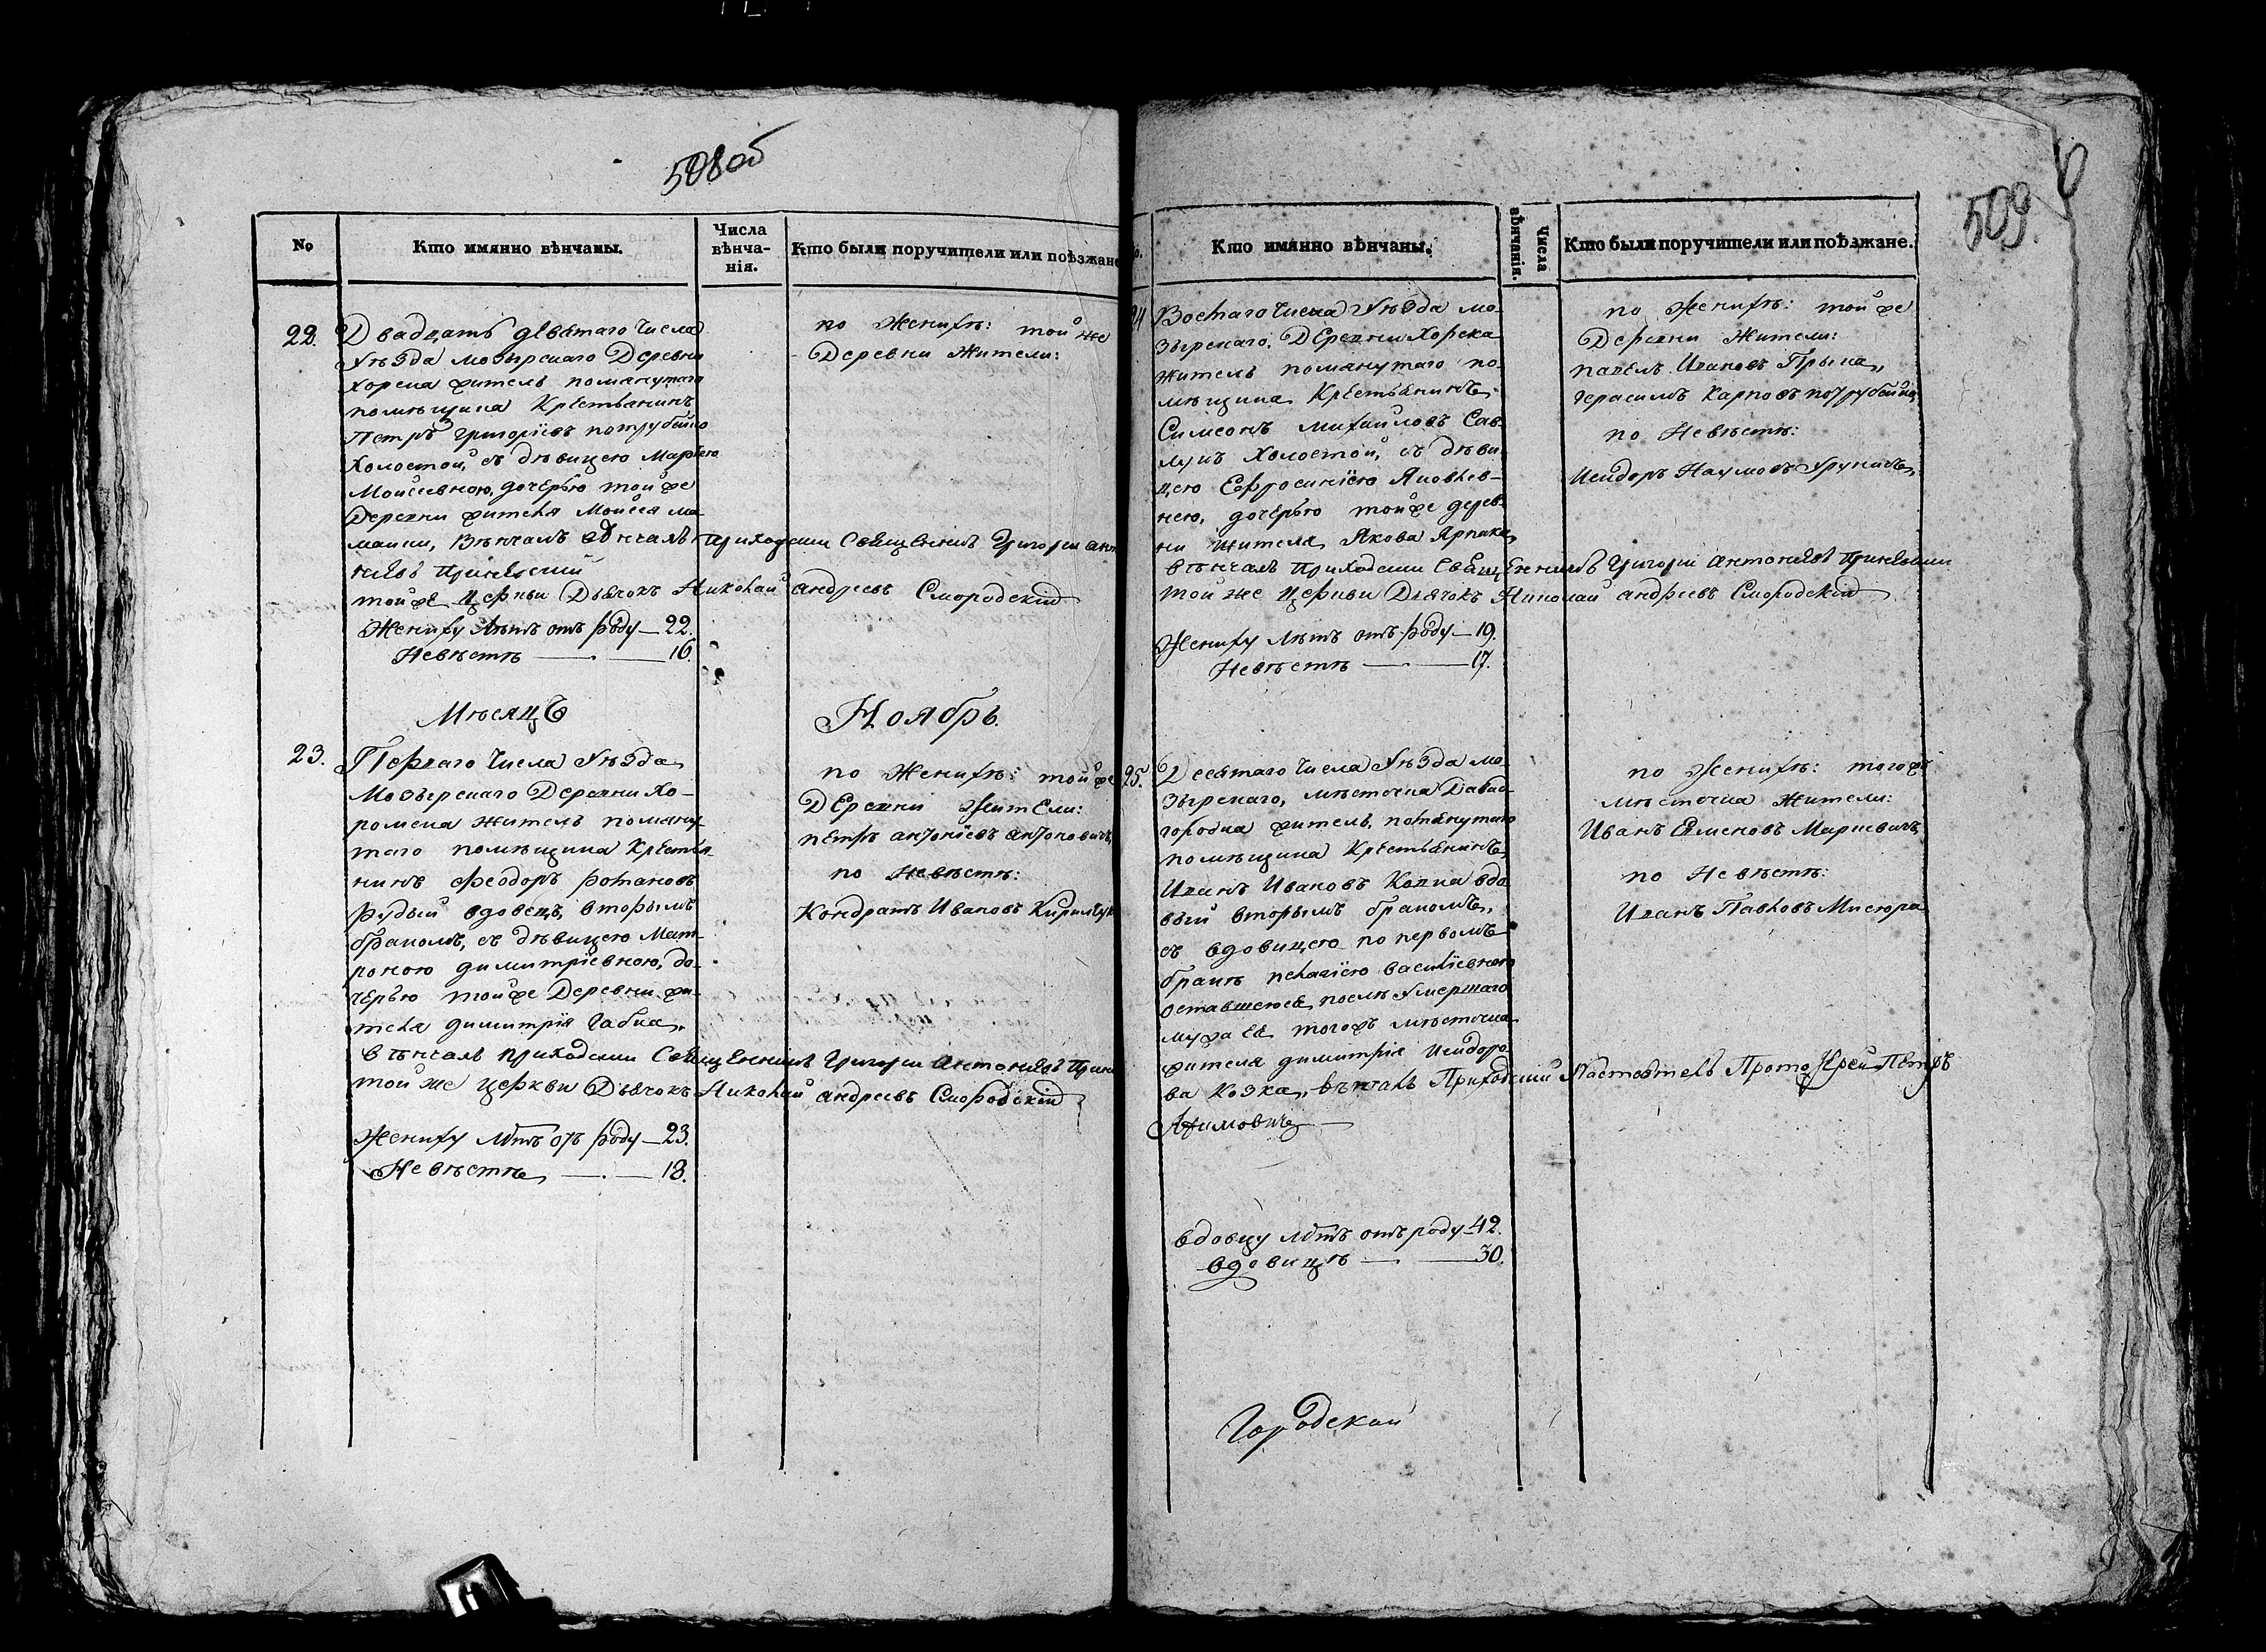 508об
№
Кто имянно вѣнчаны.
Числа
вѣнча-
нія.
Кто были поручители или поѣзжане
22.
Двадцать девятаго Числа
Уѣзда мозырскаго Деревни
хорска жител помянутаго
помѣщика Крестьянинъ
Петръ григоріевъ потрубейко
Холостой, съ дѣвицею Маріею
Моисеевною, дочерью тойже
Деревни жителя Моисея ма
Вѣнчалъ приходскии Священикъ Григории
тойже Церкви Дьячокъ Николай андреевъ Смородскій
Жениху лѣтъ отъ роду — 22.
Невѣстѣ — 16.
по Женихѣ: той же
Деревни Жители:
Мѣсяцъ
Ноябрь.
23.
Перваго Числа Уѣзда
Мозырскаго Деревни Хо-
ромска житель помяну-
таго помѣщика Крестья-
нинъ Феодоръ романовъ
Рудый вдовецъ, вторымъ
бракомъ, съ дѣвицею Мат-
роною димитріевною, до-
черью тойже Деревни жи-
теля димитрія Габца,
вѣнчалъ приходскии Священикъ Григории Антониевъ
той же церкви Дьячокъ Николай андреевъ Смородскій
Жениху лѣтъ отъ роду — 23.
Невѣстѣ — 18.
по Женихѣ: тойже
Деревни жители:
петръ антоніевъ антоновичъ,
по невѣстѣ:
Кондратъ Ивановъ
509
Кто имянно вѣнчаны.
Числа
вѣнчанія.
Кто были поручители или поѣзжане.
24
Числа Уѣзда мо-
зырскаго, Деревни Хорска
житель помянутаго по-
мѣщика Крестьянинъ
Симеонъ михайловъ Сав-
лукъ Холостой, съ дѣви-
цею Ефросиніею Яковлев-
ною, дочерью тойже дерев-
ни жителя Якова
вѣнчалъ приходскии Священникъ Григории Антониевъ
той же Церкви Дьячокъ Николай андреевъ Смородскій
Жениху лѣтъ отъ роду — 19.
Невѣстѣ — 17.
по Женихѣ: тойже
Деревни жители:
павелъ Ивановъ
герасимъ Карповъ потрубейко,
по Невѣстѣ:
Исидоръ Наумовъ
25.
Десятаго Числа Уѣзда мо-
зырскаго, мѣстечка Давид-
городка житель, помянутаго
помѣщика Крестьянинъ
Иванъ Ивановъ Колка вдо
вый вторымъ бракомъ,
съ вдовицею по первомъ
бракѣ пелагіею василіевною
оставшеюся послѣ умершаго
мужа ея тогожъ мѣстечка
жителя димитрія Исидоро-
ва Козка, вѣнчалъ Приходский Настоятель Протоіерей Петръ
Акимовичъ
вдовцу лѣтъ отъ роду — 42.
вдовицѣ — 30.
по Женихѣ: тогожъ
мѣстечка жители:
Иванъ Марцевичъ,
по Невѣстѣ:
Иванъ Павловъ Мисюра
Городской